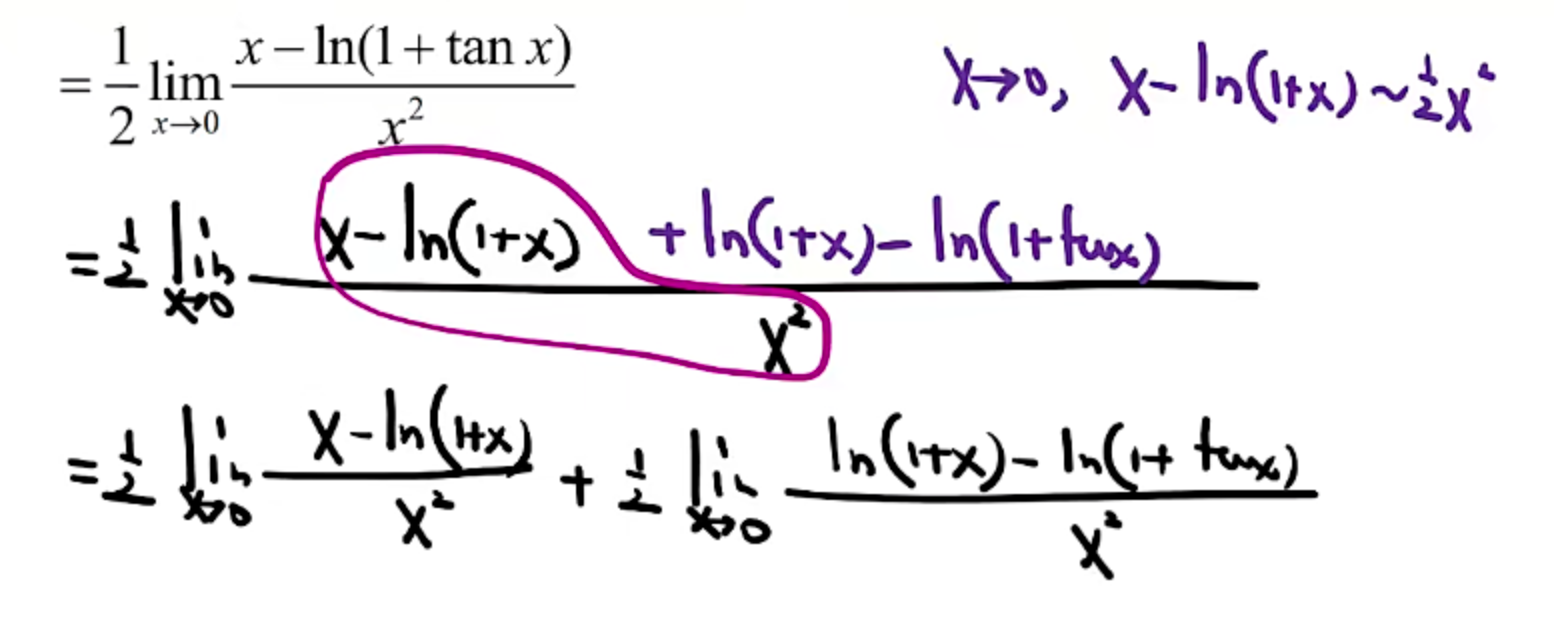 = \frac{1}{2} \lim_{x→0} \frac{x - ln(1 + tan x)}{x^2}
x→0, x - ln(1+x) ~ \frac{1}{2}x^2
= \frac{1}{2} \lim_{x→0} \frac{x - ln(1+x) + ln(1+x) - ln(1+tanx)}{x^2}
= \frac{1}{2} \lim_{x→0} \frac{x - ln(1+x)}{x^2} + \frac{1}{2} \lim_{x→0} \frac{ln(1+x) - ln(1+tanx)}{x^2}